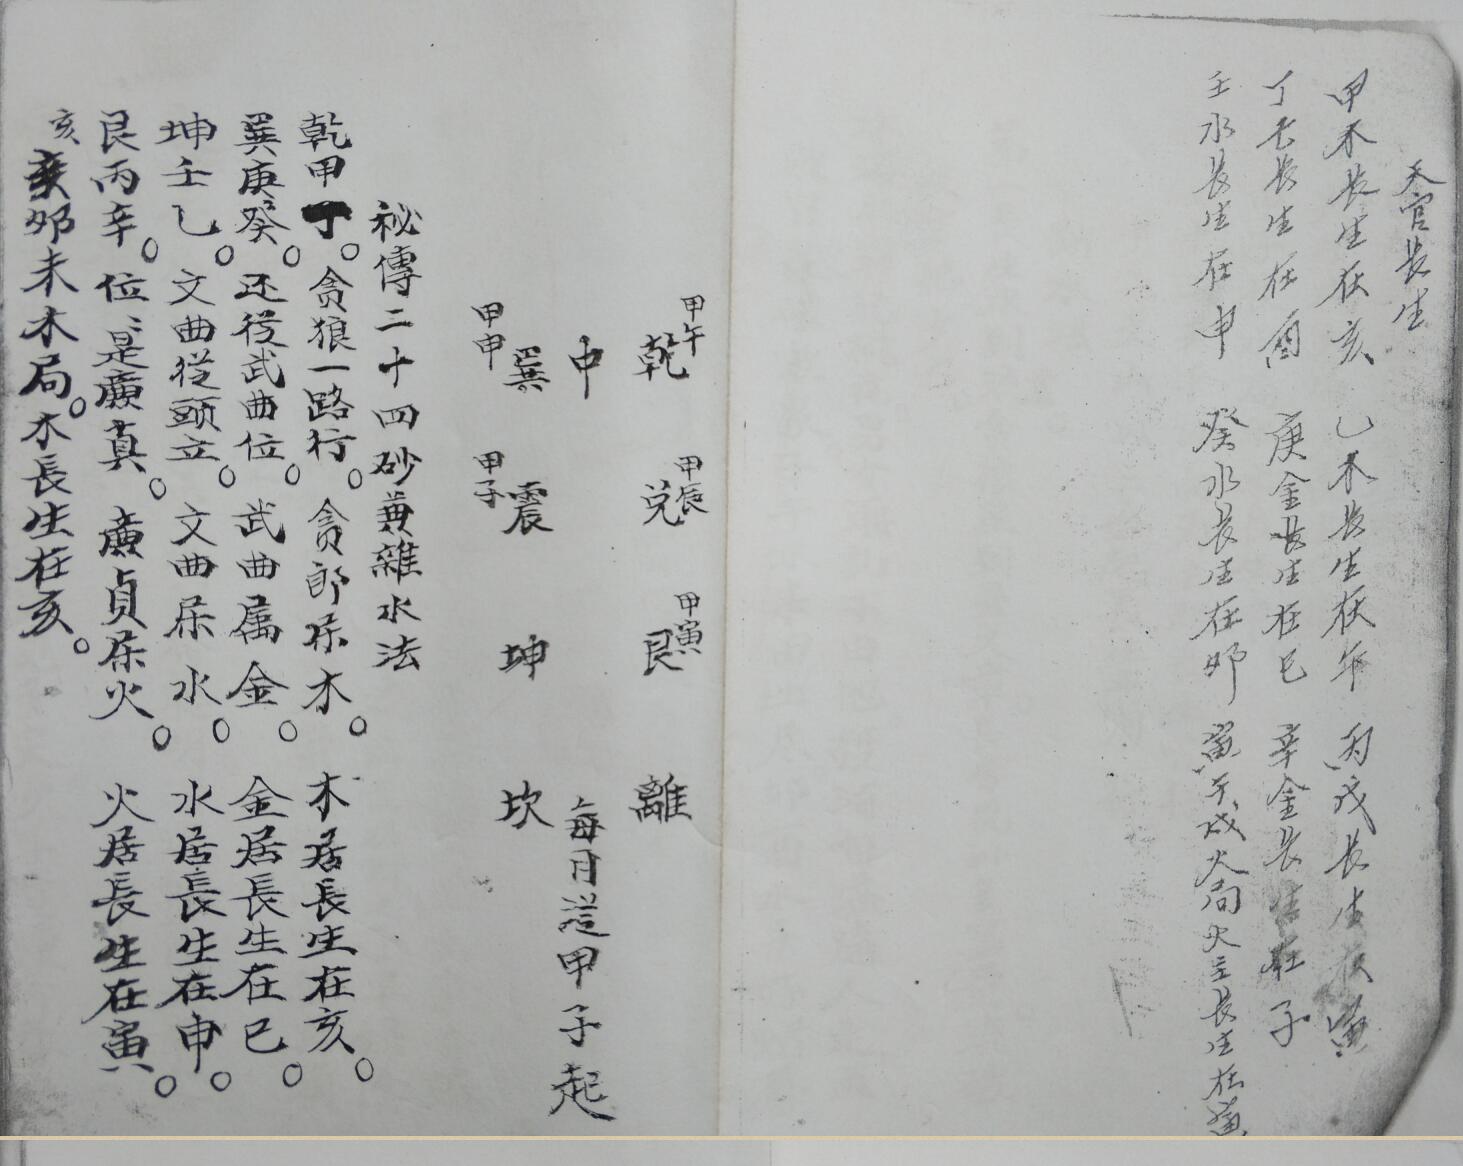 天官長生
甲木長生在亥 乙木長生在午 丙戊長生在寅
丁長生在酉 庚金長生在巳 辛金長生在子
壬水長生在申 癸水長生在卯 寅午戌火局火長生在寅
甲午 乾 甲辰 兌 甲寅 艮 離
中 每日從甲子起
甲申 巽 甲子 震 坤 坎
祕傳二十四砂黃離水法
乾甲丁。貪狼一路行。貪郎屎木。木居長生在亥。
巽庚癸。还從武曲位。武曲属金。金居長生在巳。
坤壬乙。文曲從頭立。文曲屎水。水居長生在申。
艮丙辛。位位是廣真。廣貞屎火。火居長生在寅。
亥卯未木局。木長生在亥。